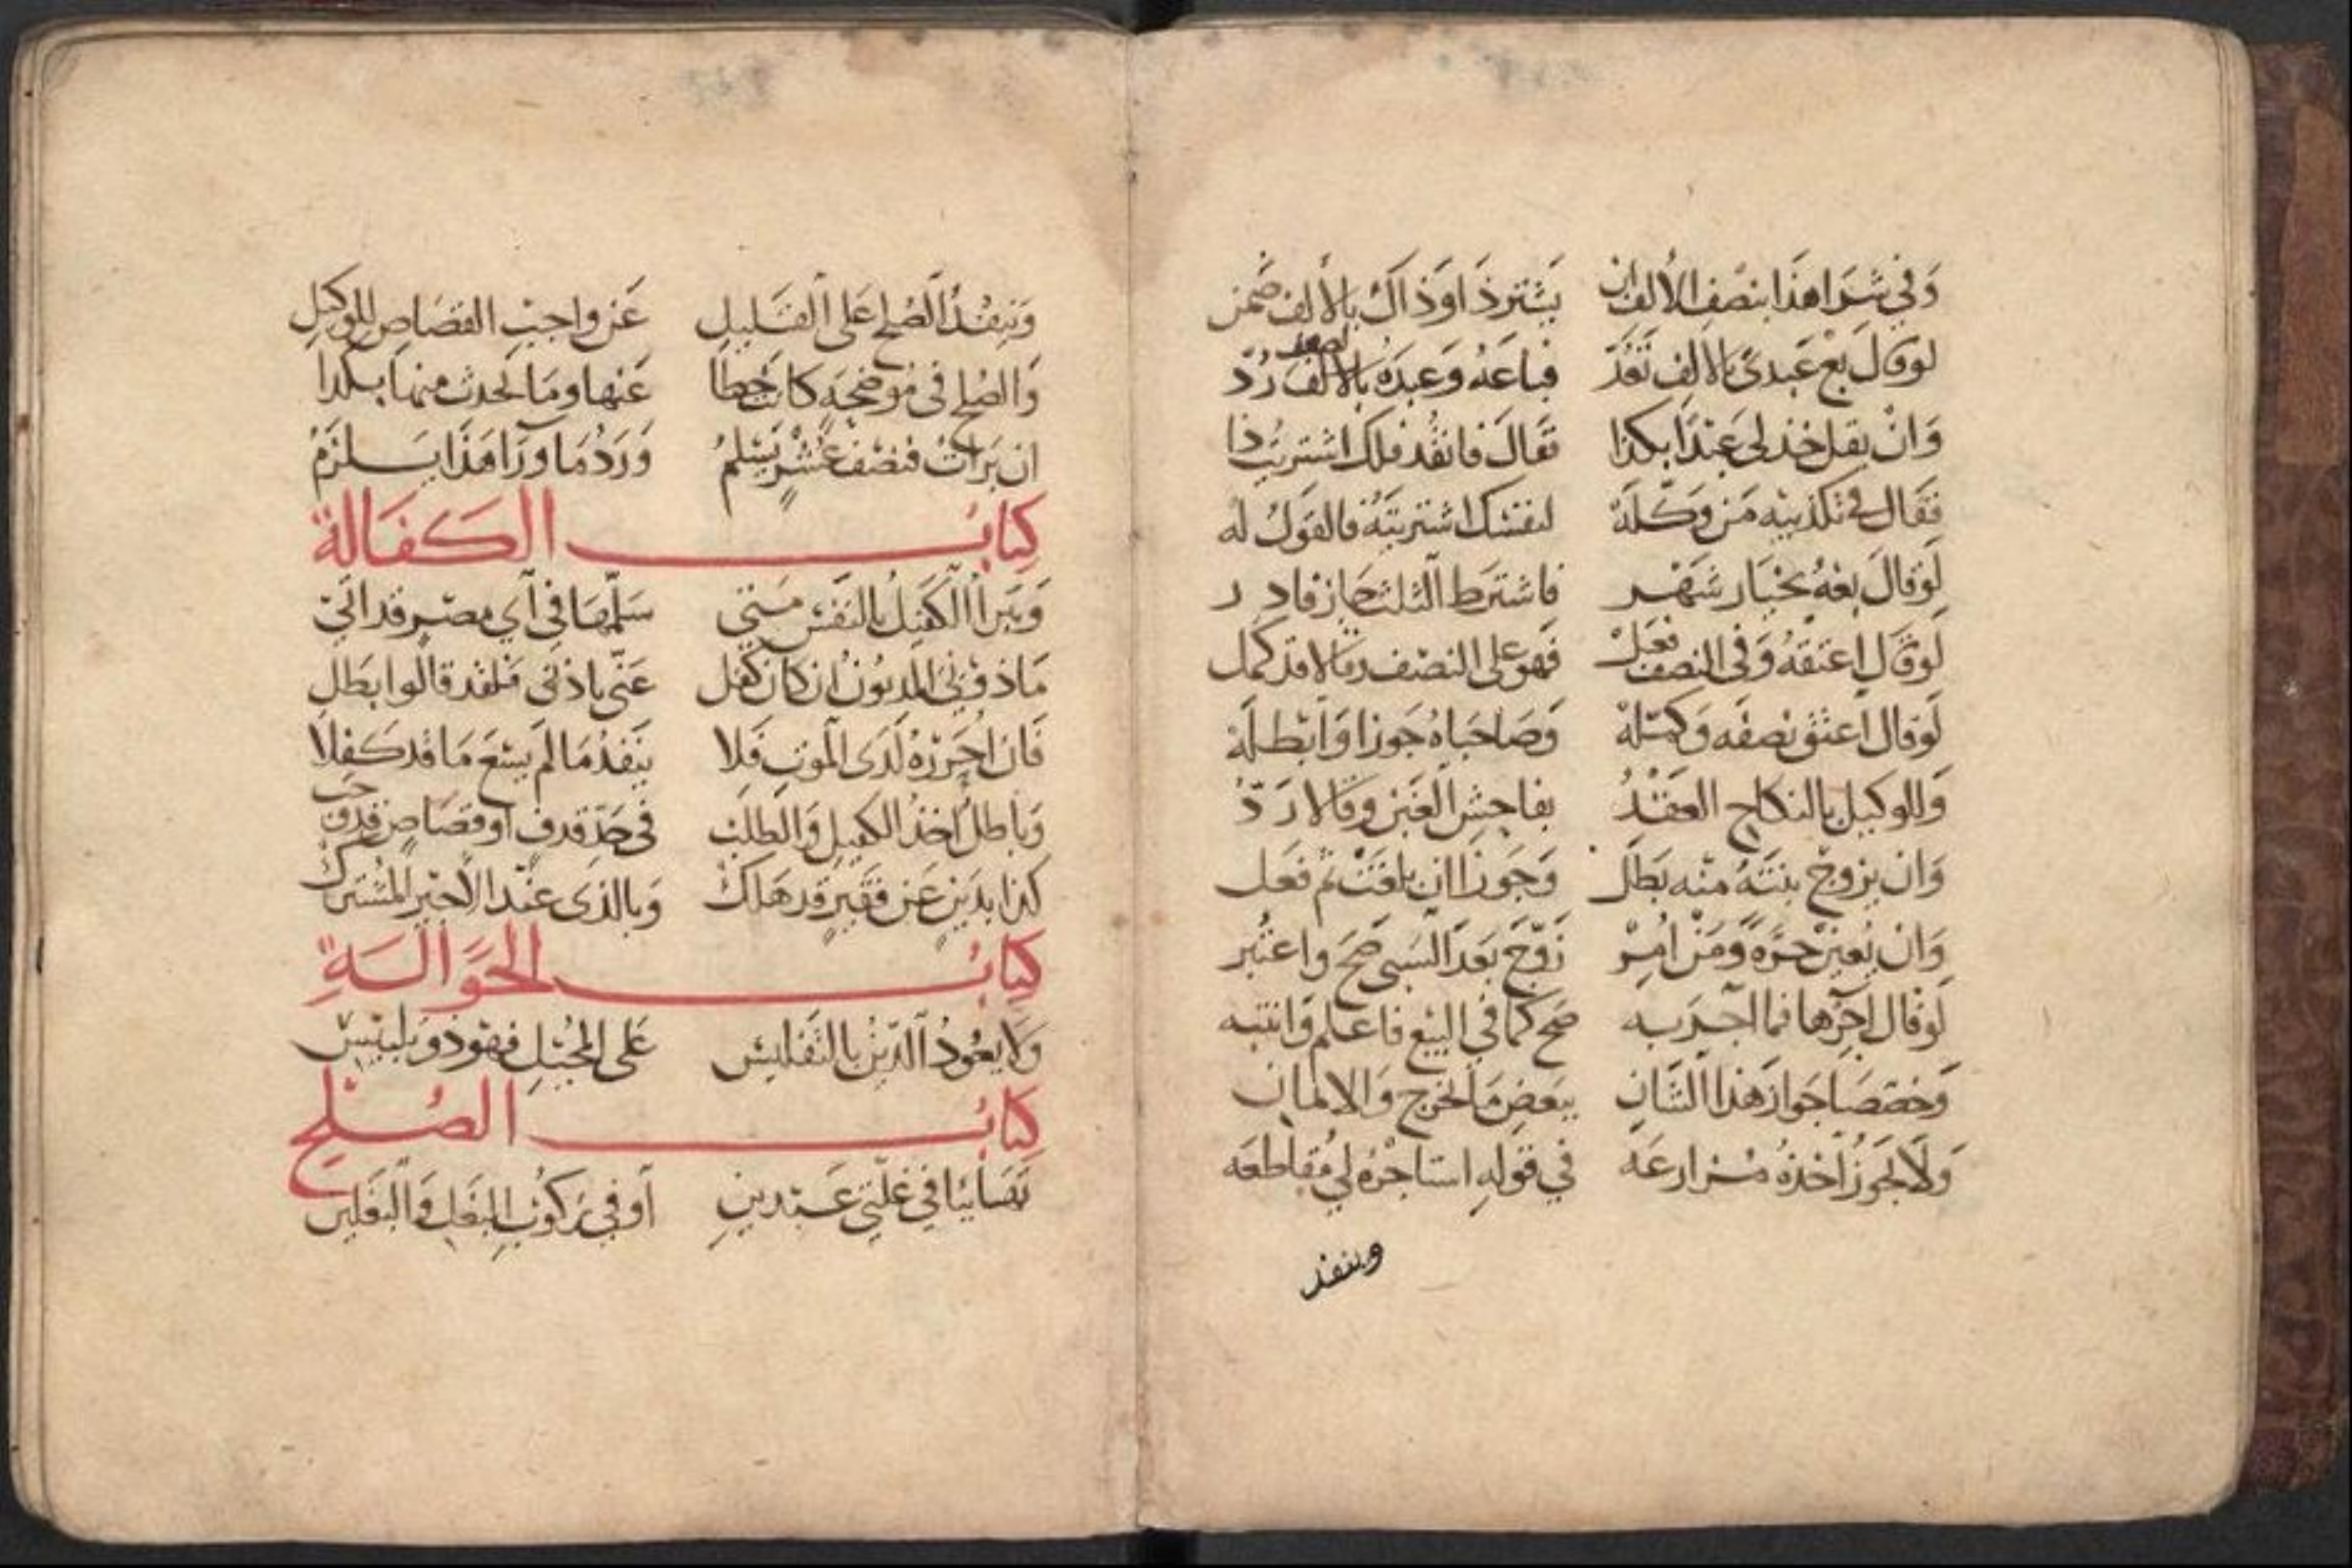 وَفي شرا هذا بنصف الألف ان يشتر ذا وذاك بالألف ضمن
لو قال بع عبدي بالألف نقد فباعه وعبده بالالف رد
وان يقل خذ لي عبدا بكذا فقال فانقد فلك اشتريت ذا
فقال في تكذيبه من وكله لنفسك اشتريته فالقول له
لو قال بعه بخيار شهر فاشترط الثلث جاز فادر
لو قال اعتقه وفي النصف فعل فهو على النصف وقالا قد كمل
لو قال اعتق نصفه وكمله وصاحباه جوزا وابطله
وللوكيل بالنكاح العقد بفاحش الغبن وقالا رد
وان يزوج بنته منه بطل وجوزا ان بلغت ثم فعل
وان يعين حرة ومن امر زوج بعد السبي صح واعتبر
لو قال آجرها فما آجر به صح كما في البيع فاعلم وانتبه
وخصصا جواز هذا الشان ببعض ما اخرج والاثمان
ولا يجوز اخذه مزارعه في قوله استاجره لي مقاطعه
وينفذ
وينفذ الصلح على القليل عن واجب القصاص للوكيل
والصلح في موضحة كانت خطا عنها وما يحدث منها بكذا
ان برات فنصف عشر يسلم ورد ما ورا هذا يلزم
كتاب الكفالة
ويبرأ الكفيل بالنفس متى سلمها في أي مصر قد اتى
ماذونتي المديون ان كان كفل عني باذني فلقد قالوا بطل
فان اجزه لدى الموت فلا ينفذ ما لم يسع ما قد كفلا
وباطل أخذ الكفيل والطلب في حد قذف أو قصاص قد وجب
كذا بدين عن فقير قد هلك وبالذي عند الأجير المشترك
كتاب الحوالة
ولا يعود الدين بالتفليس على المحيل فهو ذو تلبيس
كتاب الصلح
تهايئا في غلتي عبدين أو في ركوب البغل والبغلين